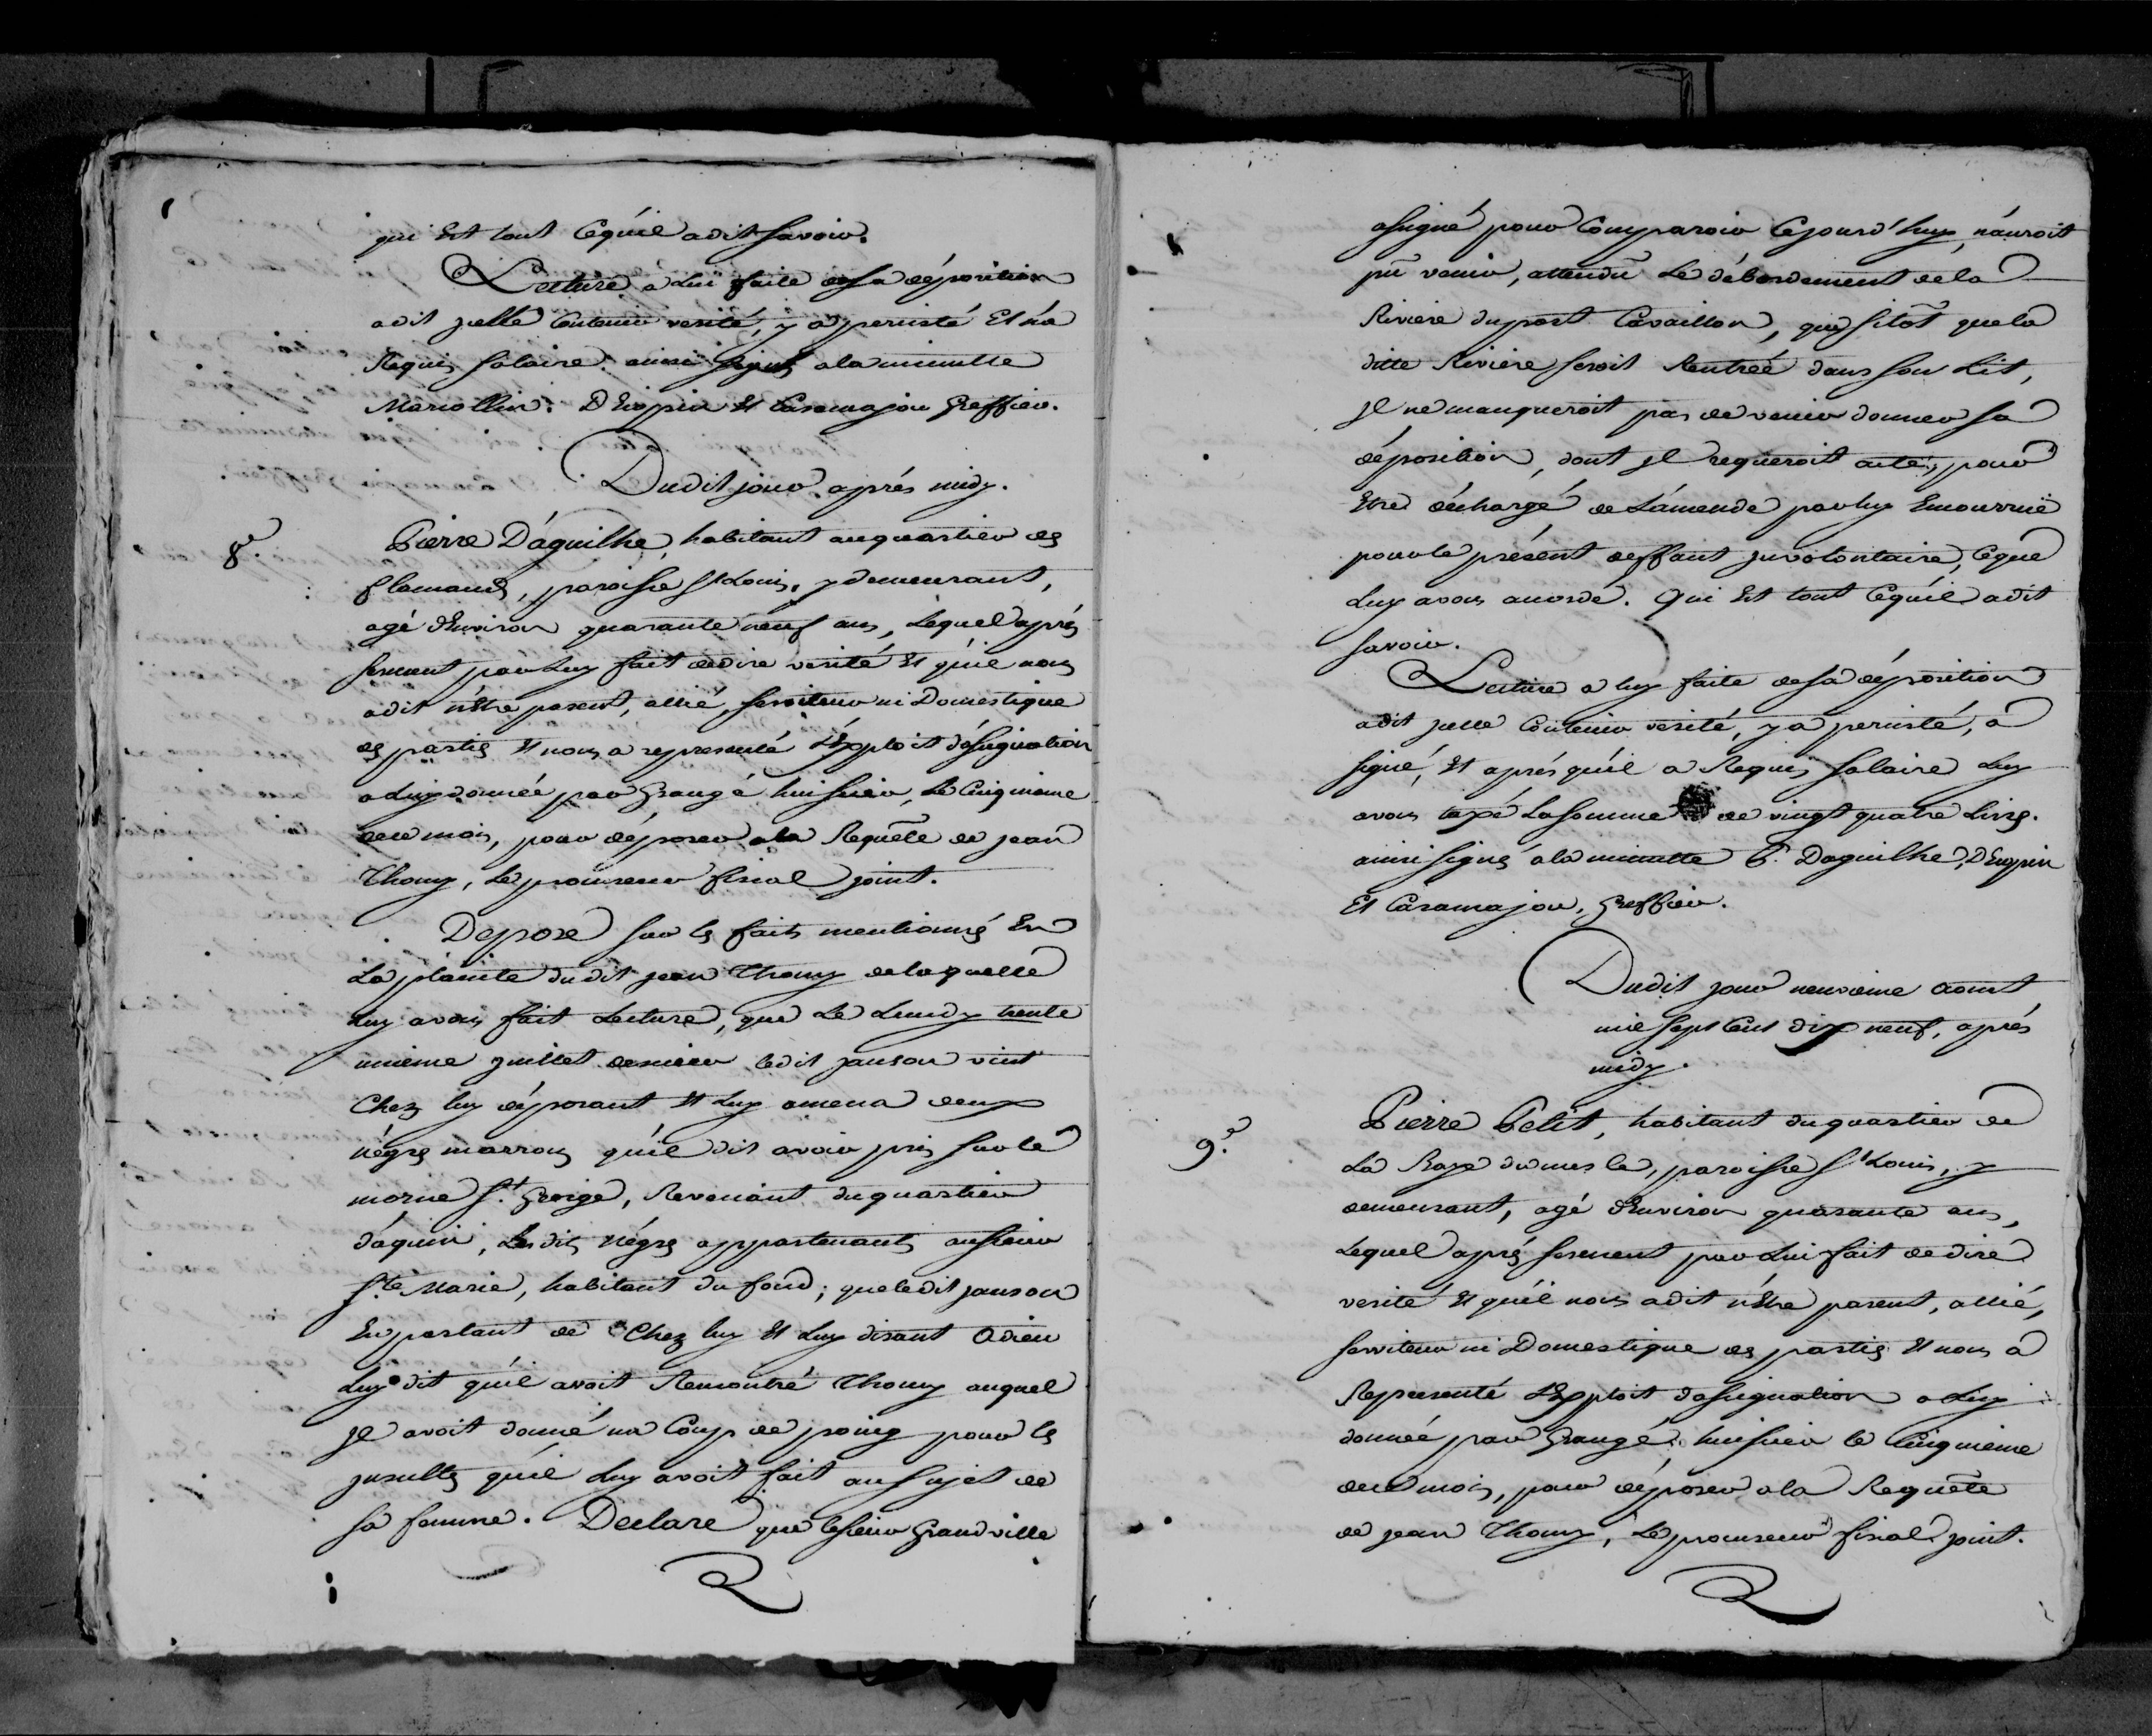 qui Est tout Cequ'il adit savoir.
Lecture à Lui faite desa déposition
adit jcelle Contenir verité, y a persisté Et n'a
Requis salaire. ainsi signés ala minutte
Mariollin. D'Enspin Et Casamajou Greffier.
Dudit jour après midy.
8.e
Pierre D'aguilhe, habitant auquartier des
flamands, paroisse St Louis, y demeurant,
agé d'Environ quarante neuf ans, Lequel après
serment par Luy fait dedire verité Et qu'il nous
adit n'Etre parent, allié, serviteur ni Domestique
des parties Et nous a representé L'Exploit d'assignation
a Luy donnée par Grangé huissier, Le Cinquieme
dece mois, pour déposer ala Requête de jean
Thomy, Le procureur fiscal joint.
Depose sur les faits mentionnés En
La plainte dudit jean Thomy delaquelle
Luy avons fait Lecture, que Le Lundy trente
unieme juillet dernier ledit janson vint
Chez luy déposant Et Luy amena deux
négres marrons qu'il dit avoir pris sur le
morne St. George, Revenant duquartier
d'aquin, Lesdits négres appartenants ausieur
Ste Marie, habitant du fond; queledit janson
En partant de Chez luy Et Luy disant Adieu
Luy dit qu'il avoit Rencontré Thomy auquel
jl avoit donné un Coup de poing pour les
jnsultes qu'il Luy avoit fait au sujet de
sa femme. Declare que lesieur Grandville
assigné pour Comparoir Cejourd'huy, n'auroit
pû venir, attendû Le débordement dela
Riviere duport Cavaillon, que sitôt quela
ditte Riviere seroit Rentrée dans son Lit,
jl ne manqueroit pas de venir donner sa
déposition, dont jl requeroit acte, pour
Etre déchargé de L'amende par luy Encourruë
pour le présent deffaut jnvolontaire, Ceque
Luy avons accordé. Qui Est tout Cequ'il adit
savoir.
Lecture a luy faite desa déposition
adit jcelle Contenir verité, y a persisté, a
signé, Et après qu'il a Requis salaire Luy
avons taxé La somme de vingt quatre Livres.
ainsi signés ala minutte P. Daguilhe, D'Enspin
Et Casamajou, Greffier.
Dudit jour neuvieme Aoust
mil sept Cent dix neuf, après
midy.
9.e
Pierre Petit, habitant duquartier de
La Raye dumesle, paroisse St Louis, y
demeurant, agé d'Environ quarante ans,
Lequel après serment par Lui fait dedire
verité Et qu'il nous adit n'Etre parent, allié,
serviteur ni Domestique des parties Et nous a
Representé L'Exploit d'assignation a Luy
donnée par Grangé, huissier le Cinquieme
dece mois, pour déposer ala Requête
de jean Thomy, Le procureur fiscal joint.